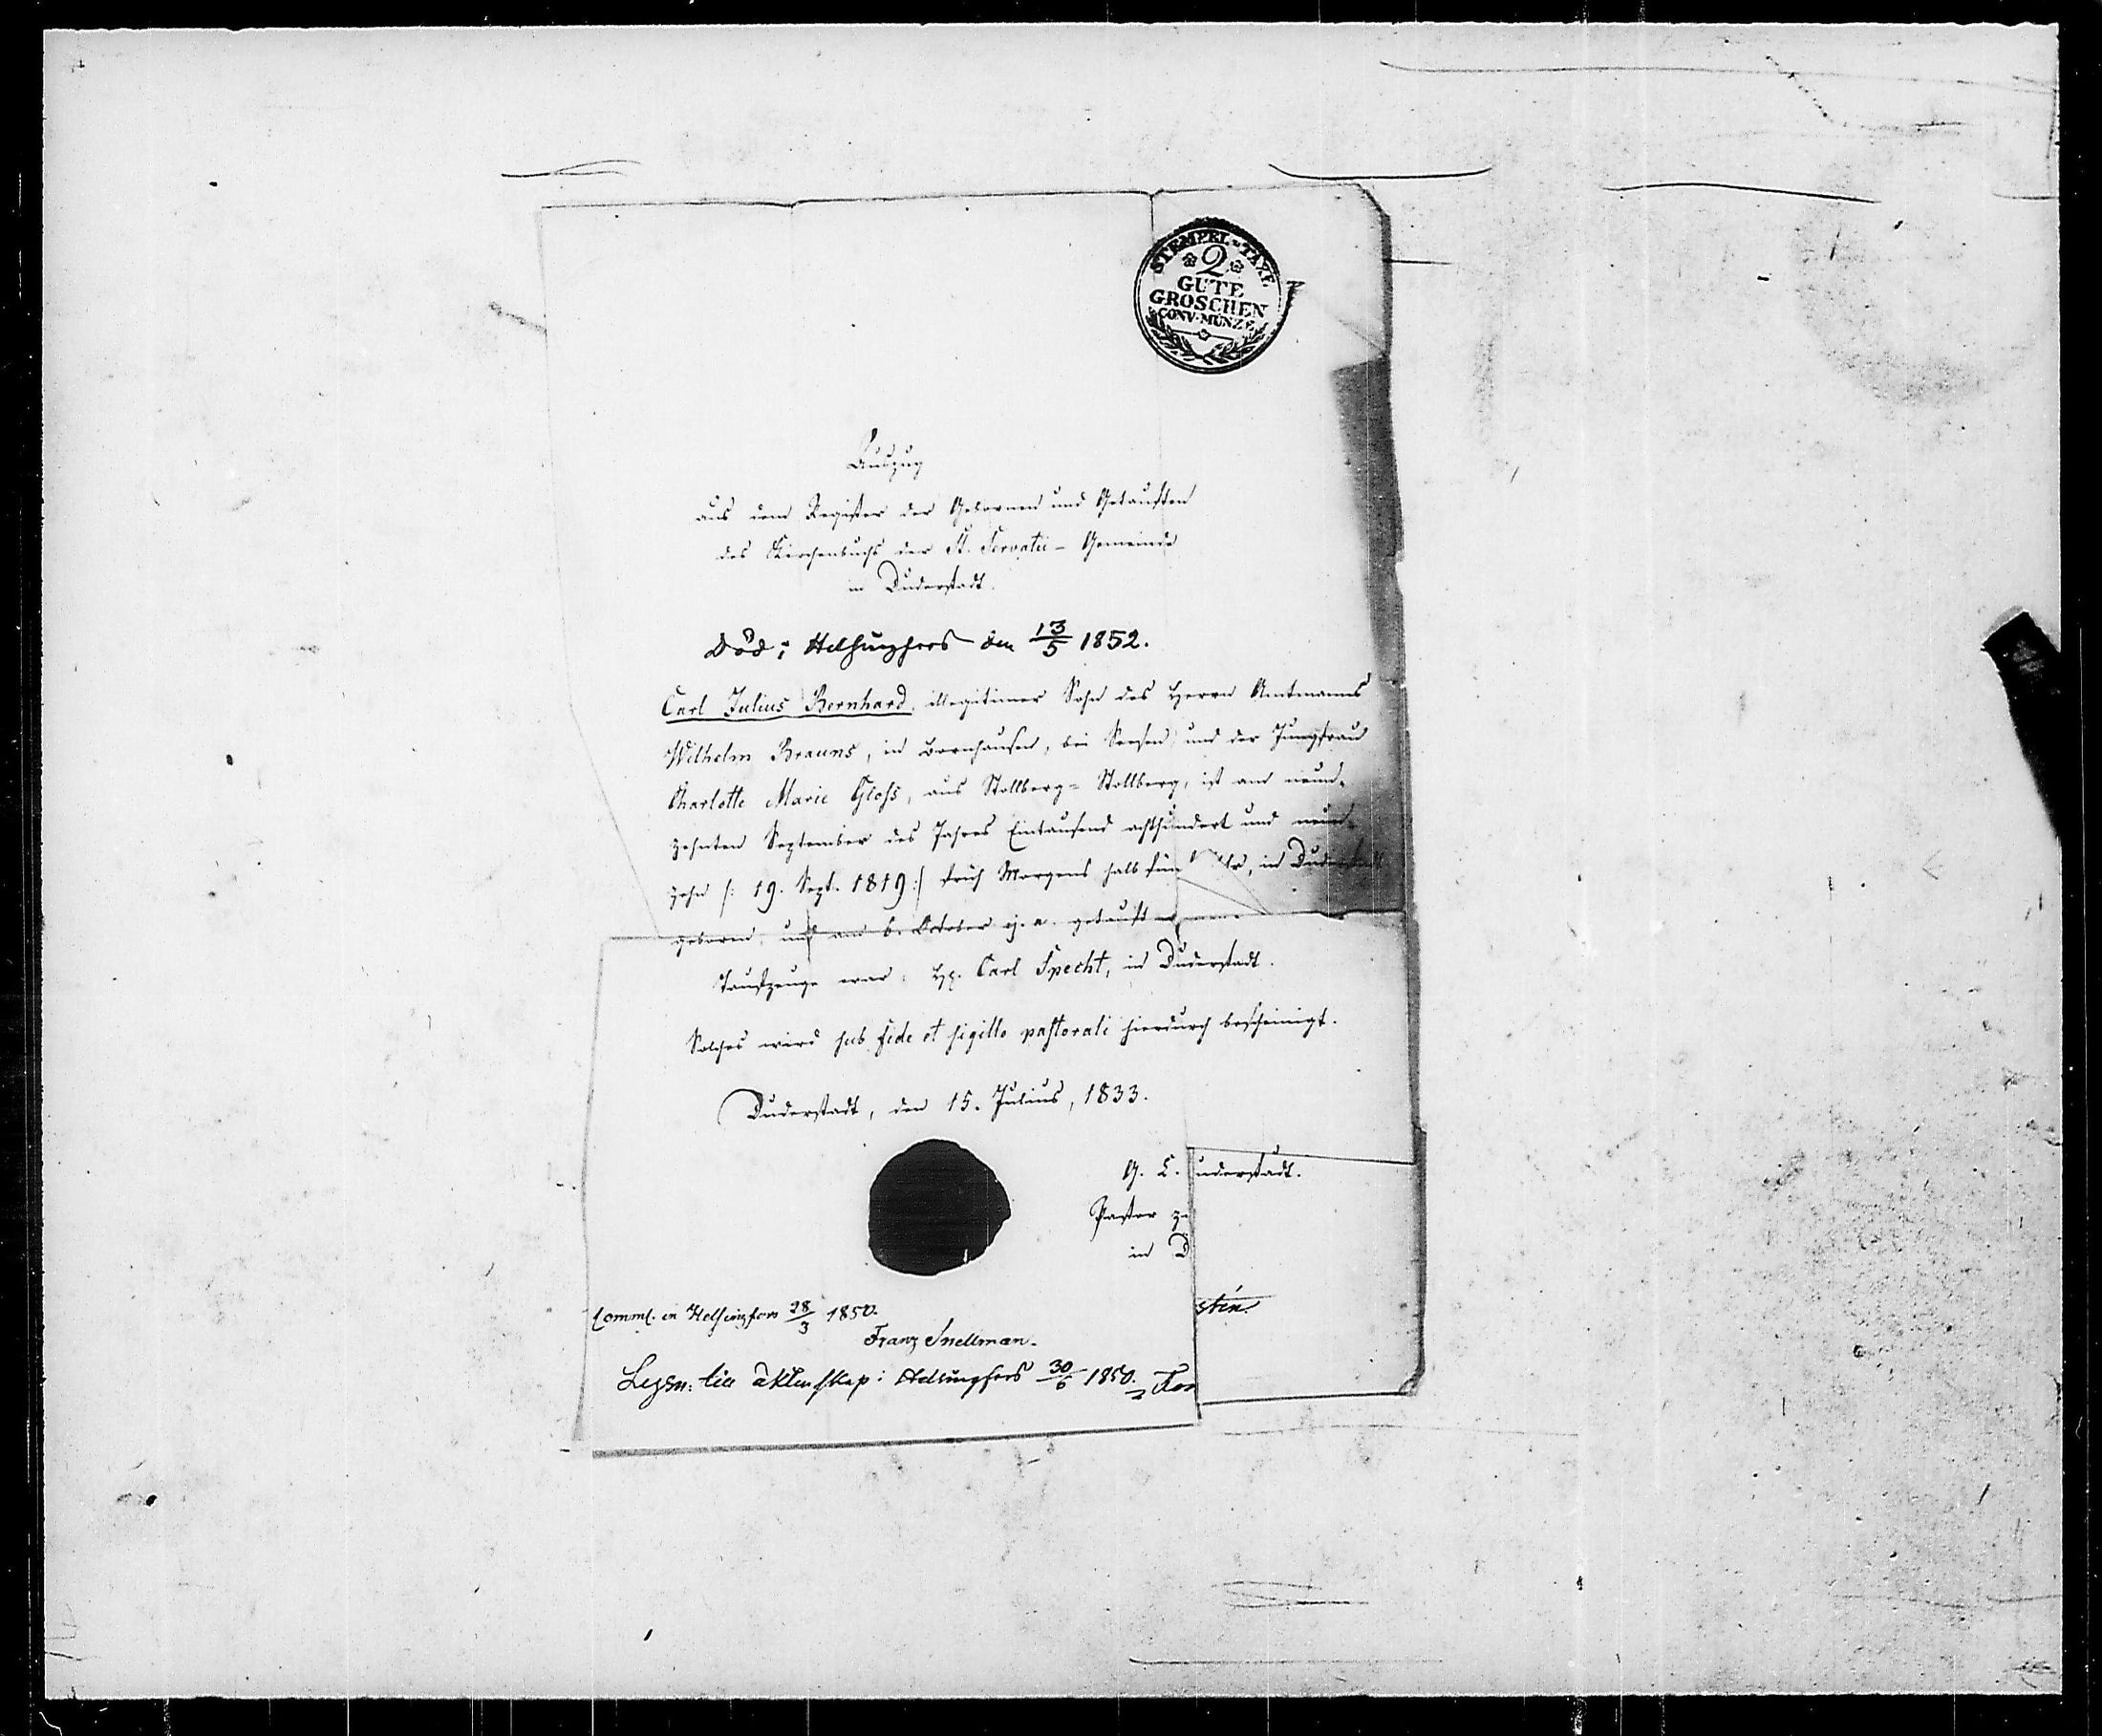 STEMPEL-TAXE
2
GUTE
GROSCHEN
CONV-MÜNZE
Auszug
aus dem Register der Gebornen und Getauften
des Kirchenbuchs der St. Servatii-Gemeinde
in Duderstadt.
Död i Helsingfors den 13/5 1852.
Carl Julius Bernhard, illegitimer Sohn des Herrn Amtmanns
Wilhelm Brauns, in Bornhausen, bei Seesen und der Jungfrau
Charlotte Marie Gloß, aus Stollberg-Stollberg, ist am neun-
zehnten September des Jahres Eintausend achthundert und neun-
zehn /: 19. Sept. 1819 :/ früh Morgens halb fün Uhr, in Duderstadt
geboren, und am 6. October ej. a. getauft
Taufzeuge war: H. Carl Specht, in Duderstadt.
Solches wird sub fide et sigillo pastorali hierdurch bescheinigt.
Duderstadt, den 15. Julius, 1833.
G. L. uderstadt.
Pastor z
in D
Comml. in Helsingfors 28/3 1850.
Franz Snellman.
stén.
Lysn. till äktenskap i Helsingfors 30/6 1850.